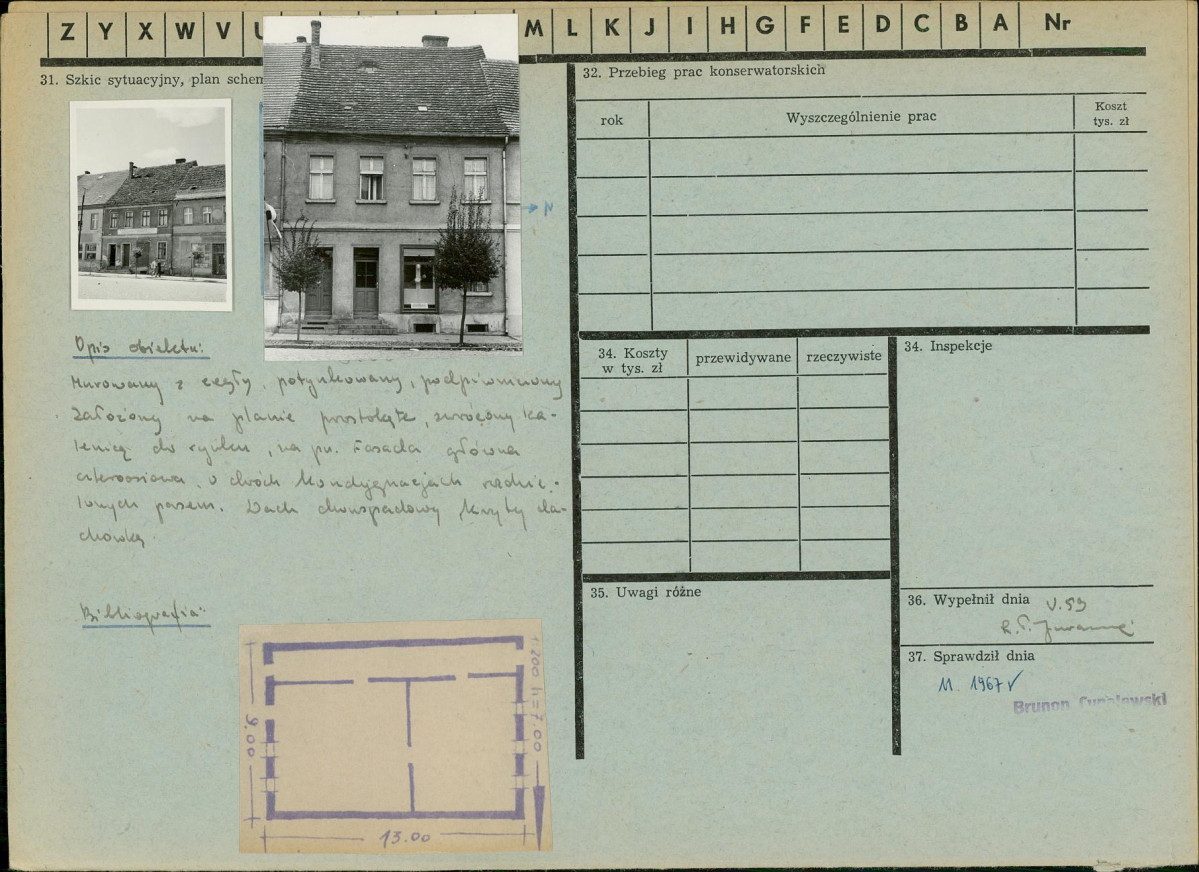 Z Y X W V U M L K J I H G F E D C B A Nr
31. Szkic sytuacyjny, plan schem
N
Opis obiektu:
Murowany z cegły, potynkowany, podpiwniczony
Założony na planie prostokąta, zwrócony ka-
lenicą do rynku, na pn. Fasada główna
czteroosiowa, o dwóch kondygnacjach rozdzie-
lonych pasem. Dach dwuspadowy kryty da-
chówką
Bibliografia:
9.00
13.00
1:200 h=7.00
32. Przebieg prac konserwatorskich
rok Wyszczególnienie prac Koszt
tys. zł
34. Koszty
w tys. zł
przewidywane rzeczywiste
34. Inspekcje
35. Uwagi różne
36. Wypełnił dnia V.59
37. Sprawdził dnia
11. 1967
Brunon